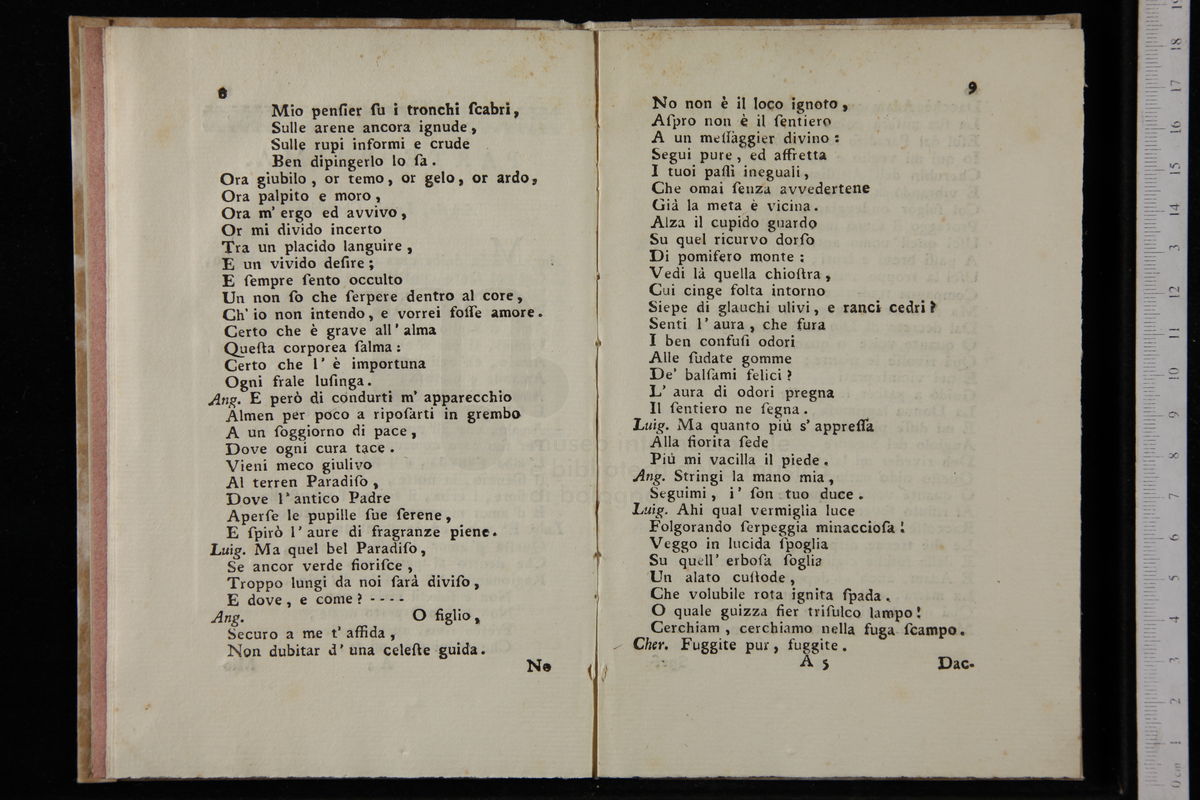 8
Mio penſier ſu i tronchi ſcabri,
Sulle arene ancora ignude,
Sulle rupi informi e crude
Ben dipingerlo lo ſa.
Ora giubilo, or temo, or gelo, or ardo,
Ora palpito e moro,
Ora m' ergo ed avvivo,
Or mi divido incerto
Tra un placido languire,
E un vivido deſire;
E ſempre ſento occulto
Un non ſo che ſerpere dentro al core,
Ch' io non intendo, e vorrei foſſe amore.
Certo che è grave all' alma
Queſta corporea ſalma:
Certo che l' è importuna
Ogni frale luſinga.
Ang. E però di condurti m' apparecchio
Almen per poco a ripoſarti in grembo
A un ſoggiorno di pace,
Dove ogni cura tace.
Vieni meco giulivo
Al terren Paradiſo,
Dove l' antico Padre
Aperſe le pupille ſue ſerene,
E ſpirò l' aure di fragranze piene.
Luig. Ma quel bel Paradiſo,
Se ancor verde fioriſce,
Troppo lungi da noi ſarà diviſo,
E dove, e come? ----
Ang. O figlio,
Securo a me t' affida,
Non dubitar d' una celeſte guida.
No
9
No non è il loco ignoto,
Aſpro non è il ſentiero
A un meſſaggier divino:
Segui pure, ed affretta
I tuoi paſſi ineguali,
Che omai ſenza avvedertene
Già la meta è vicina.
Alza il cupido guardo
Su quel ricurvo dorſo
Di pomifero monte:
Vedi là quella chioſtra,
Cui cinge folta intorno
Siepe di glauchi ulivi, e ranci cedri?
Senti l' aura, che fura
I ben confuſi odori
Alle ſudate gomme
De' balſami felici?
L' aura di odori pregna
Il ſentiero ne ſegna.
Luig. Ma quanto più s' appreſſa
Alla fiorita ſede
Più mi vacilla il piede.
Ang. Stringi la mano mia,
Seguimi, i' ſon tuo duce.
Luig. Ahi qual vermiglia luce
Folgorando ſerpeggia minaccioſa!
Veggo in lucida ſpoglia
Su quell' erboſa ſoglia
Un alato cuſtode,
Che volubile rota ignita ſpada.
O quale guizza fier triſulco lampo!
Cerchiam, cerchiamo nella fuga ſcampo.
Cher. Fuggite pur, fuggite.
A 5 Dac-